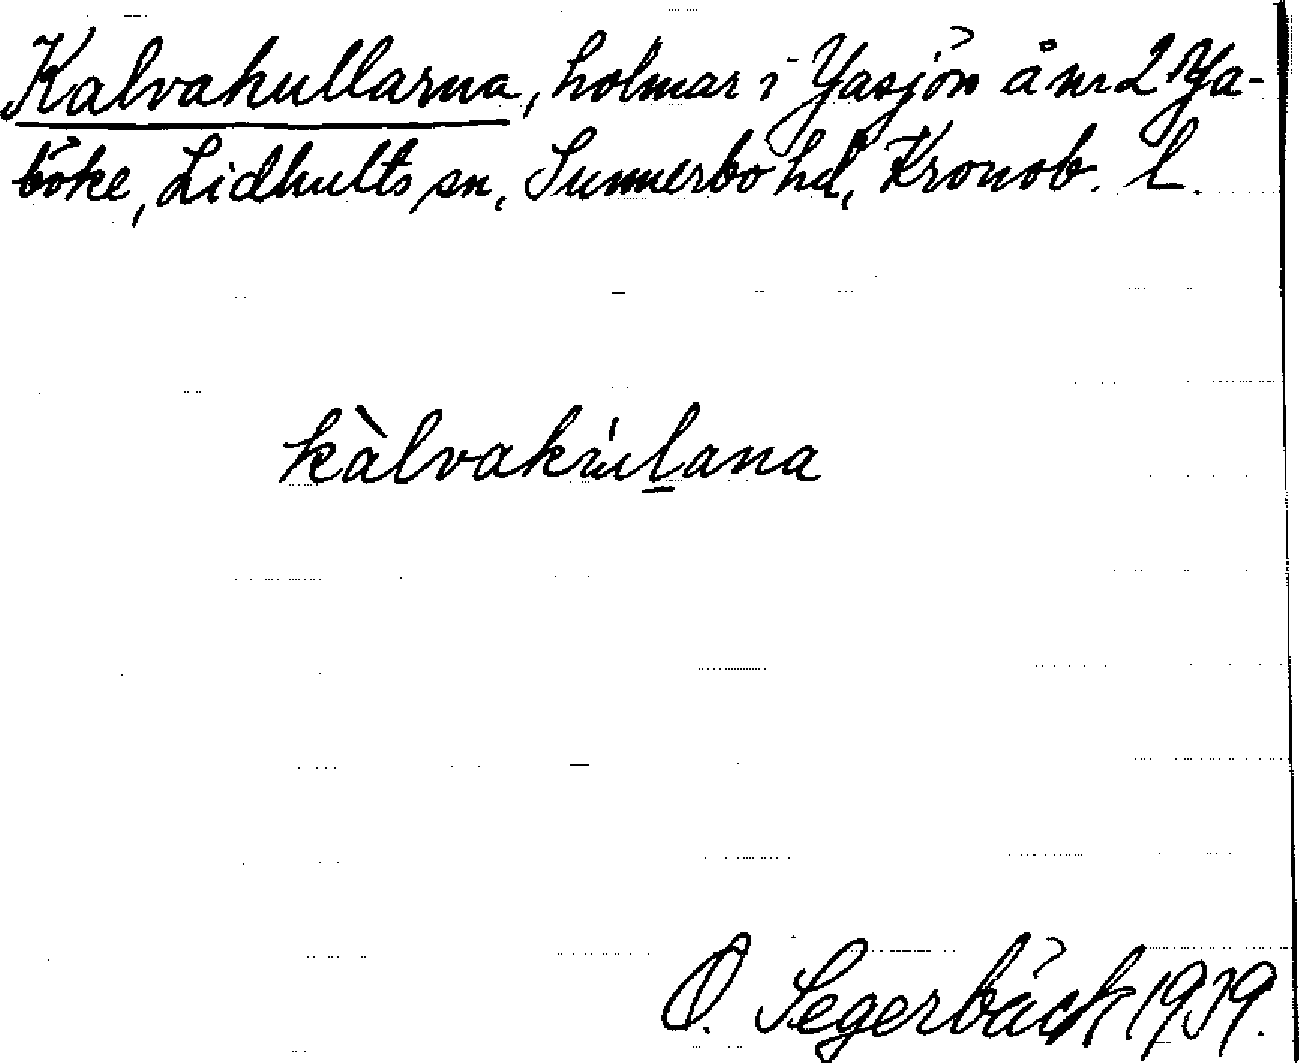 Kalvakullarna, holmar i Yasjön å nr 2 Ya-
böke, Lidhults sn, Sunnerbo hd, Kronob. l.
kàlvakúlana
O. Segerbäck 1939.